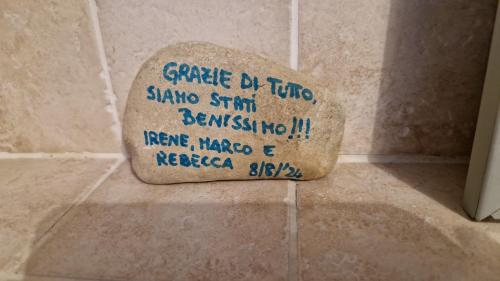 GRAZIE DI TUTTO,
SIAMO STATI
BENISSIMO!!!
IRENE, MARCO E
REBECCA 8/8/'24